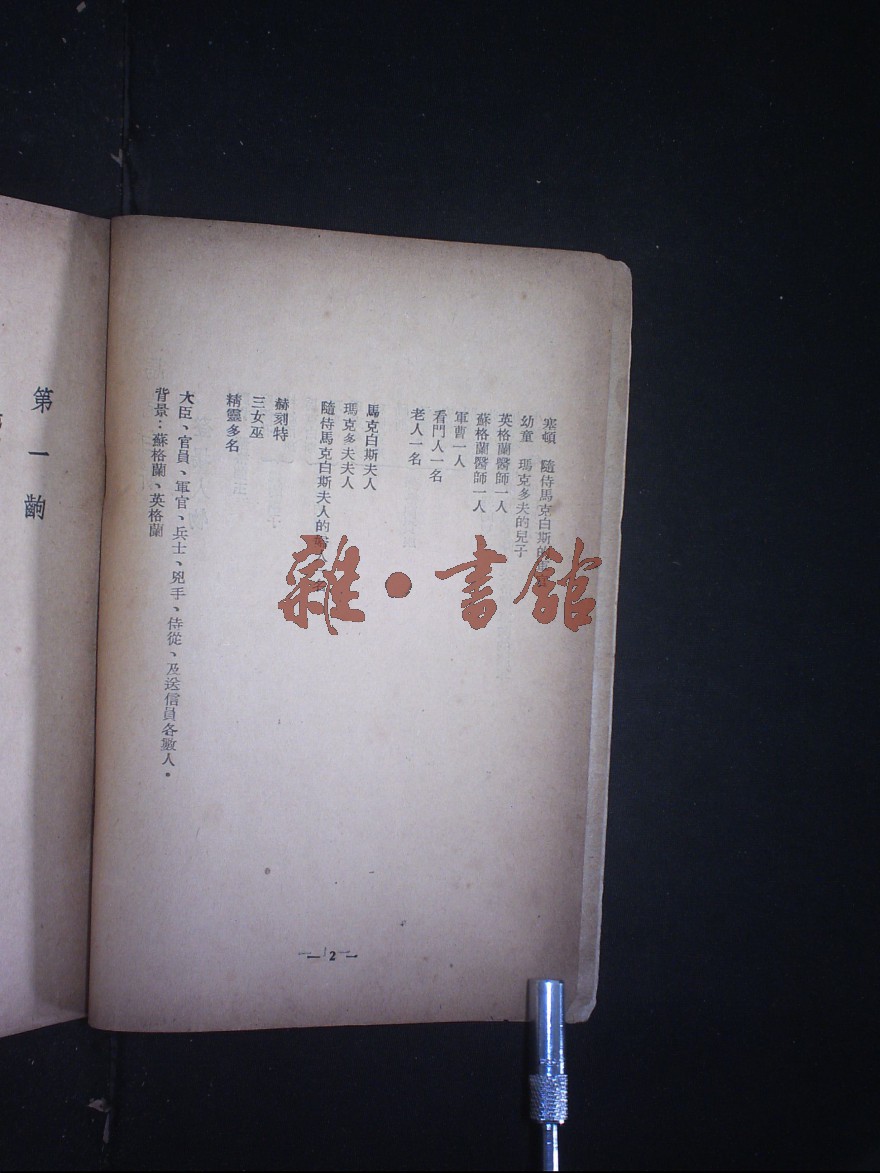 塞頓　隨侍馬克白斯的
幼童　瑪克多夫的兒子
英格蘭醫師一人
蘇格蘭醫師一人
軍曹一人
看門人一名
老人一名
馬克白斯夫人
瑪克多夫夫人
隨侍馬克白斯夫人的 人
赫刻特
三女巫
精靈多名
大臣、官員、軍官、兵士、兇手、侍從、及送信員各數人。
背景：蘇格蘭、英格蘭
— 2 —
第一齣
雜·書館